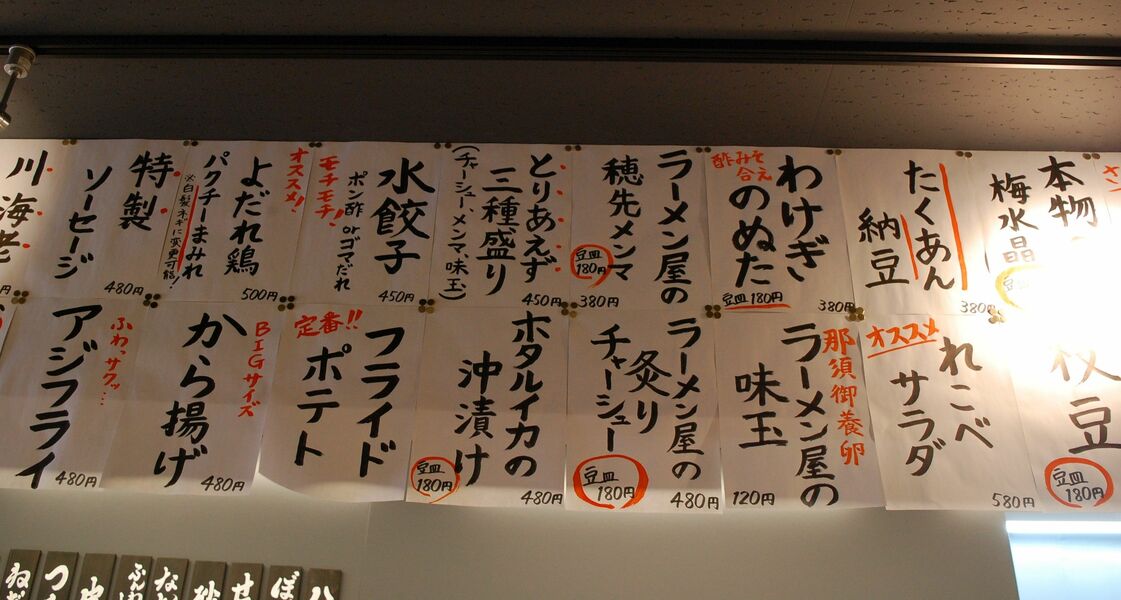 本物
梅水晶
豆皿
たくあん
納豆
380円
酢みそ
和え
わけぎ
のぬた
豆皿180円
380円
ラーメン屋の
穂先メンマ
豆皿
180円
380円
とりあえず
三種盛り
(チャーシュー、メンマ、味玉)
450円
水餃子
ポン酢orゴマだれ
モチモチ!
450円
オススメ!
よだれ鶏
パクチーまみれ
※白髪ネギに変更可能!
500円
特製
ソーセージ
480円
川海老
枝豆
豆皿
180円
オススメ
れこべ
サラダ
580円
那須御養卵
ラーメン屋の
味玉
120円
ラーメン屋の
炙り
チャーシュー
豆皿
180円
480円
ホタルイカの
沖漬け
豆皿
180円
480円
定番!!
フライド
ポテト
BIGサイズ
から揚げ
480円
ふわっサクッ…
アジフライ
480円